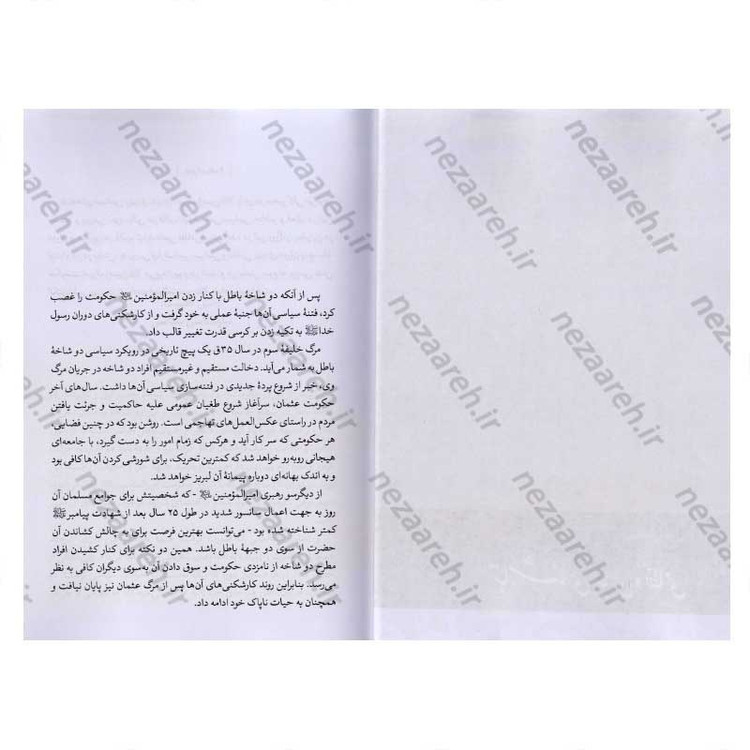 پس از آنکه دو شاخهٔ باطل با کنار زدن امیرالمؤمنین ﷺ حکومت را غصب
کرد، فتنهٔ سیاسی آن‌ها جنبهٔ عملی به خود گرفت و از کارشکنی‌های دوران رسول
خدا ﷺ به تکیه زدن بر کرسی قدرت تغییر قالب داد.
مرگ خلیفهٔ سوم در سال ۳۵ق یک پیچ تاریخی در رویکرد سیاسی دو شاخهٔ
باطل به شمار می‌آید. دخالت مستقیم و غیرمستقیم افراد دو شاخه در جریان مرگ
وی، خبر از شروع پردهٔ جدیدی در فتنه‌سازی سیاسی آن‌ها داشت. سال‌های آخر
حکومت عثمان، سرآغاز شروع طغیان عمومی علیه حاکمیت و جرئت یافتن
مردم در راستای عکس‌العمل‌های تهاجمی است. روشن بود که در چنین فضایی،
هر حکومتی که سر کار آید و هرکس که زمام امور را به دست گیرد، با جامعه‌ای
هیجانی روبه‌رو خواهد شد که کمترین تحریک، برای شورشی کردن آن‌ها کافی بود
و به اندک بهانه‌ای دوباره پیمانهٔ آن لبریز خواهد شد.
از دیگرسو رهبری امیرالمؤمنین - که شخصیتش برای جوامع مسلمان آن
روز به جهت اعمال سانسور شدید در طول ۲۵ سال بعد از شهادت پیامبر ﷺ
کمتر شناخته شده بود - می‌توانست بهترین فرصت برای به چالش کشاندن آن
حضرت از سوی دو جبههٔ باطل باشد. همین دو نکته برای کنار کشیدن افراد
مطرح دو شاخه از نامزدی حکومت و سوق دادن آن به‌سوی دیگران کافی به نظر
می‌رسد. بنابراین روند کارشکنی‌های آن‌ها پس از مرگ عثمان نیز پایان نیافت و
همچنان به حیات ناپاک خود ادامه داد.
nezaareh.ir
nezaareh.ir
nezaareh.ir
nezaareh.ir
nezaareh.ir
nezaareh.ir